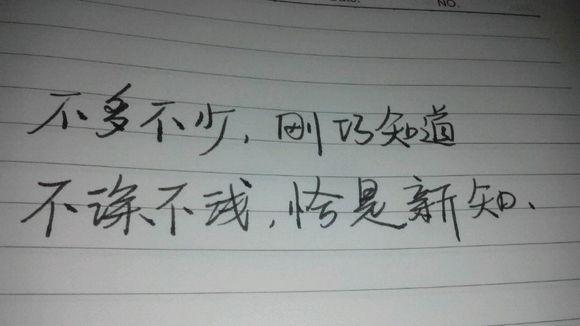 NO.
不多不少，刚巧知道
不深不浅，恰是新知、